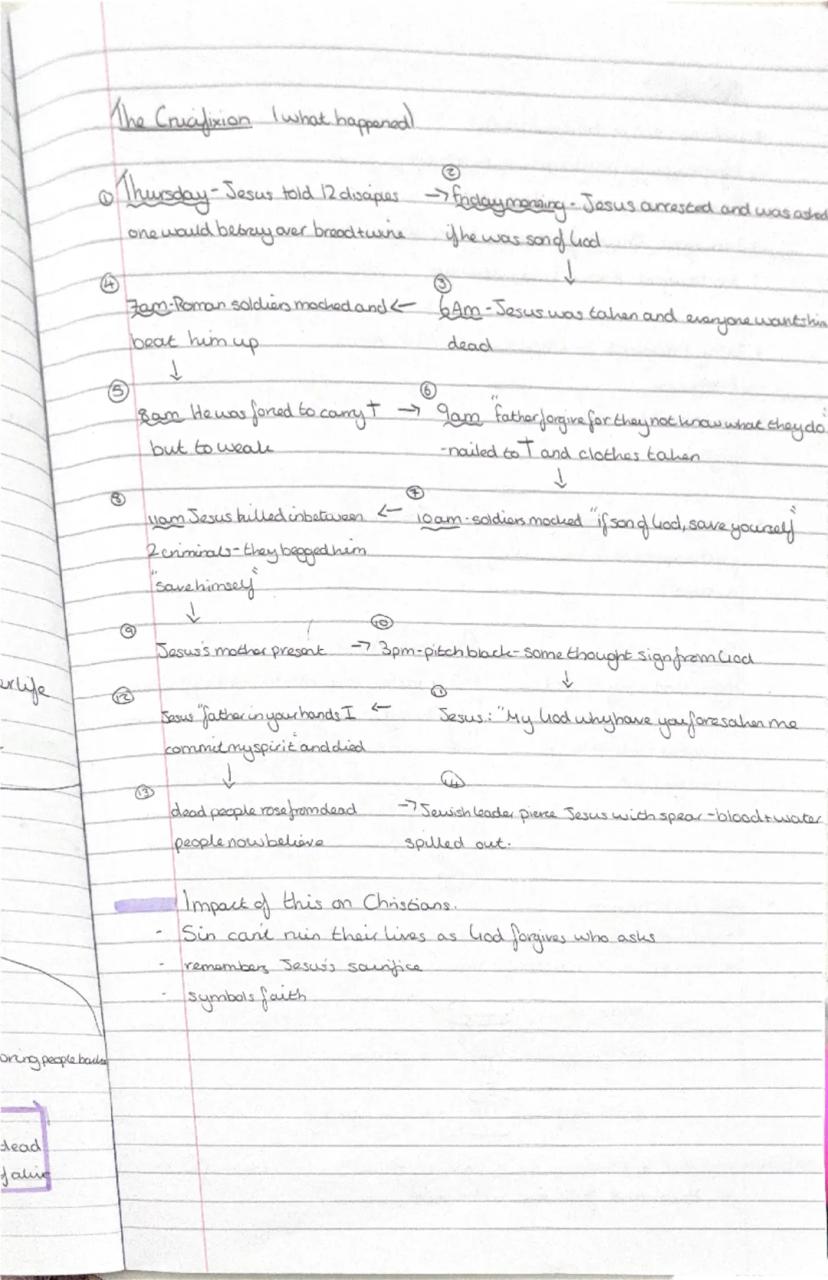 The Crucifixion (what happened)
① Thursday - Jesus told 12 discipes
one would betray over bread + wine
② → Friday morning - Jesus arrested and was asked
if he was son of God
↓
③ 6Am - Jesus was taken and everyone wants him
dead
④ 7am - Roman soldiers mocked and ←
beat him up
↓
⑤ 8am He was forced to carry †
but to weak
⑥ → 9am "father forgive for they not know what they do"
- nailed to † and clothes taken
↓
⑦ ← 10am - soldiers mocked "if son of God, save yourself"
⑧ 11am Jesus killed inbetween
2 criminals - they begged him
"save himself"
↓
⑨ Jesus's mother present
⑩ → 3pm - pitch black - some thought sign from God
↓
⑪ Jesus: "My God why have you foresaken me
⑫ Jesus "father in your hands I ←
commit my spirit" and died
↓
⑬ dead people rose from dead
people now believe
⑭ → Jewish leader pierce Jesus with spear - blood + water
spilled out.
Impact of this on Christians.
- Sin can't ruin their lives as God forgives who asks
- remembers Jesus's sacrifice
- symbols faith
er life
oning people back
dead
f alive